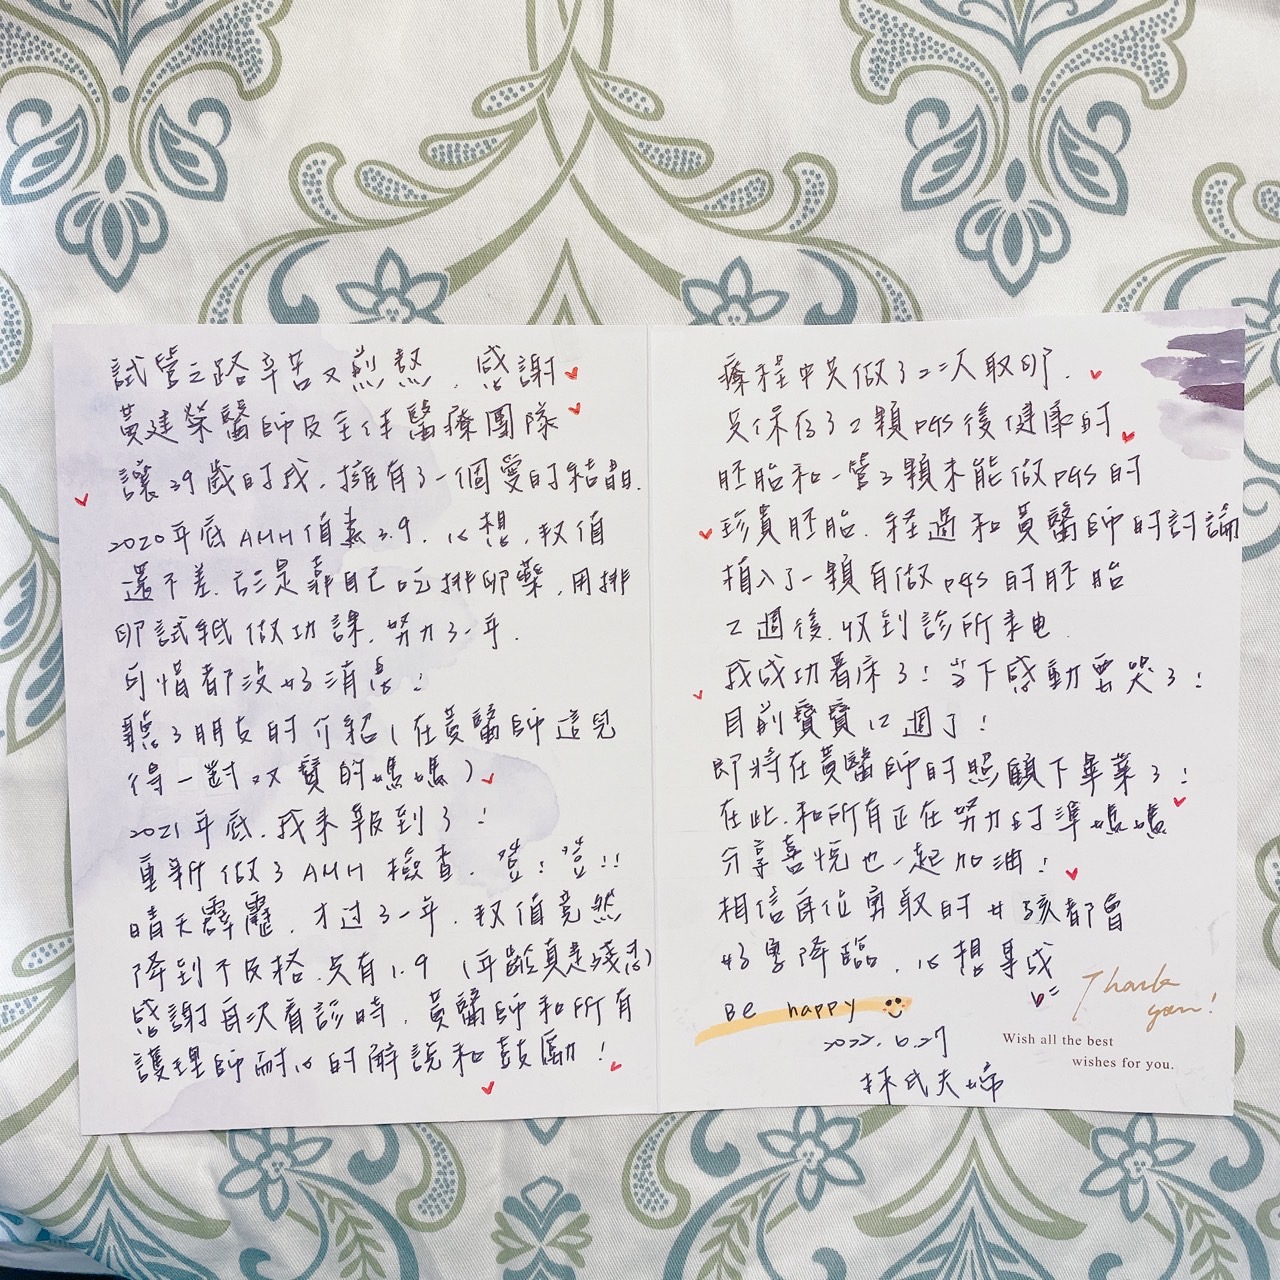 試管之路辛苦又煎熬，感謝
黃建榮醫師及全体醫療團隊
讓39歲的我，擁有了一個愛的結晶.
2020年底AMH值素3.9，心想，数值
還不差，於是靠自己吃排卵藥，用排
卵試紙做功課，努力了一年.
可惜都沒好消息！
聽了朋友的介紹（在黃醫師這兒
得一對双寶的媽媽）
2021年底，我來報到了！
重新做了AMH檢查，登！登！！
晴天霹靂，才过了一年，数值竟然
降到不及格，只有1.9（年齡真是殘忍）
感謝每次看診時，黃醫師和所有
護理師耐心的解說和鼓勵！
療程中共做了二次取卵，
共保存了2顆PGS後健康的
胚胎和一管3顆未能做PGS的
珍貴胚胎，経過和黃醫師的討論
植入了一顆有做PGS的胚胎
2週後，收到診所來电
我成功着床了！当下感動要哭了！
目前寶寶12週了！
即將在黃醫師的照顧下畢業了！
在此，和所有正在努力的準媽媽
分享喜悅也一起加油！
相信每位勇敢的女孩都會
好孕降臨，心想事成
Be happy
2022.6.27
林氏夫婦
Thank
you!
Wish all the best
wishes for you.